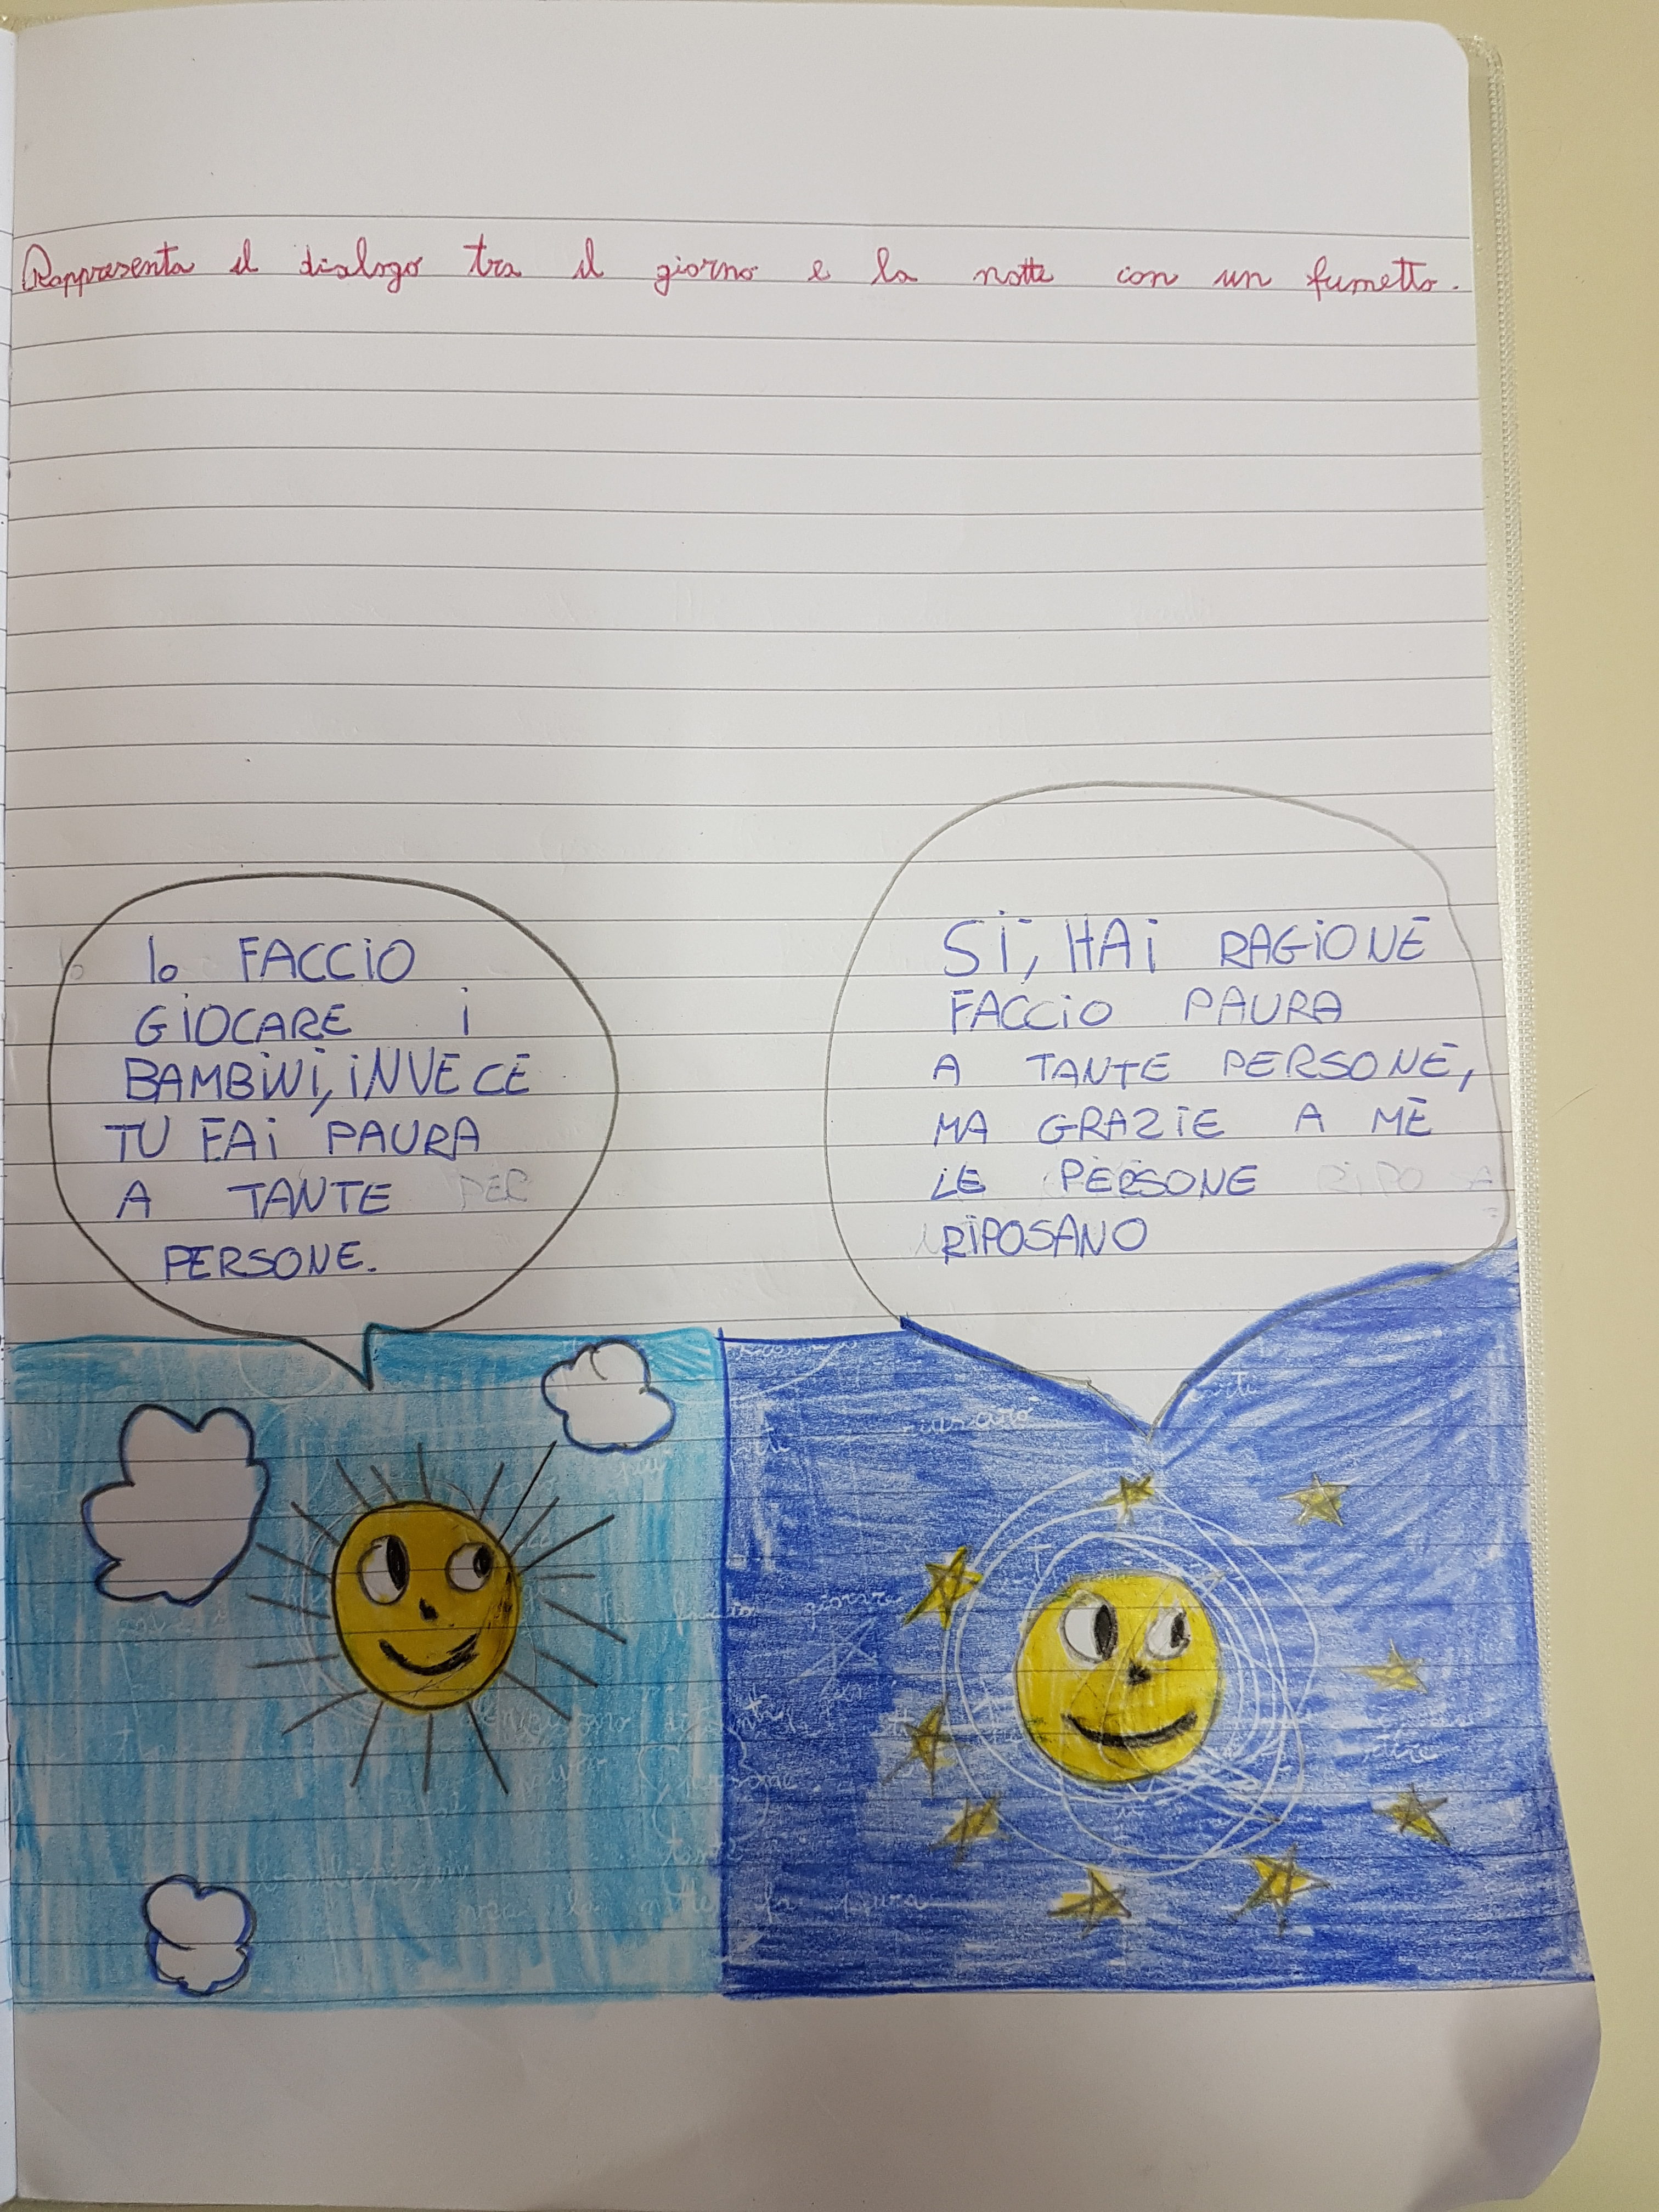 Rappresenta il dialogo tra il giorno e la notte con un fumetto.
Io FACCIO
GIOCARE i
BAMBiNi, iNVECE
TU FAi PAURA
A TANTE PER
PERSONE.
Si, HAi RAGiONE
FACCiO PAURA
A TANTE PERSONE,
MA GRAZiE A ME
LE PERSONE RiPOSA
RiPOSANO